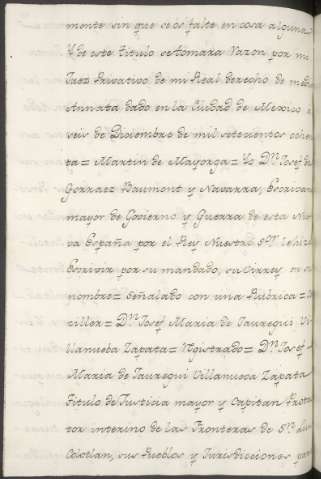 mente sin que se os falte en cosa alguna
Y de este titulo se tomara razon por mi
Juez Privativo de mi Real derecho de media
Annata dado en la Ciudad de Mexico a
seis de Diciembre de mil setecientos ochen
ta = Martin de Mayorga = Yo Dn. Josef de
Gorraez Baumont y Navarra, Escrivano
mayor de Govierno y Guerra de esta Nue
va España por el Rey Nuestro Sor. le hize
Escrivir por su mandado, su Virrey en su
nombre = Señalado con una Rubrica =
ziller = Dn. Josef Maria de Jauregui Vi
llanueba Zapata = Registrado = Dn. Josef
Maria de Jauregui Villanueva Zapata
Titulo de Justicia mayor y Capitan Protec
tor interino de las Fronteras de Sn. Luis
Colotlan, sus Pueblos y Jurisdicciones para